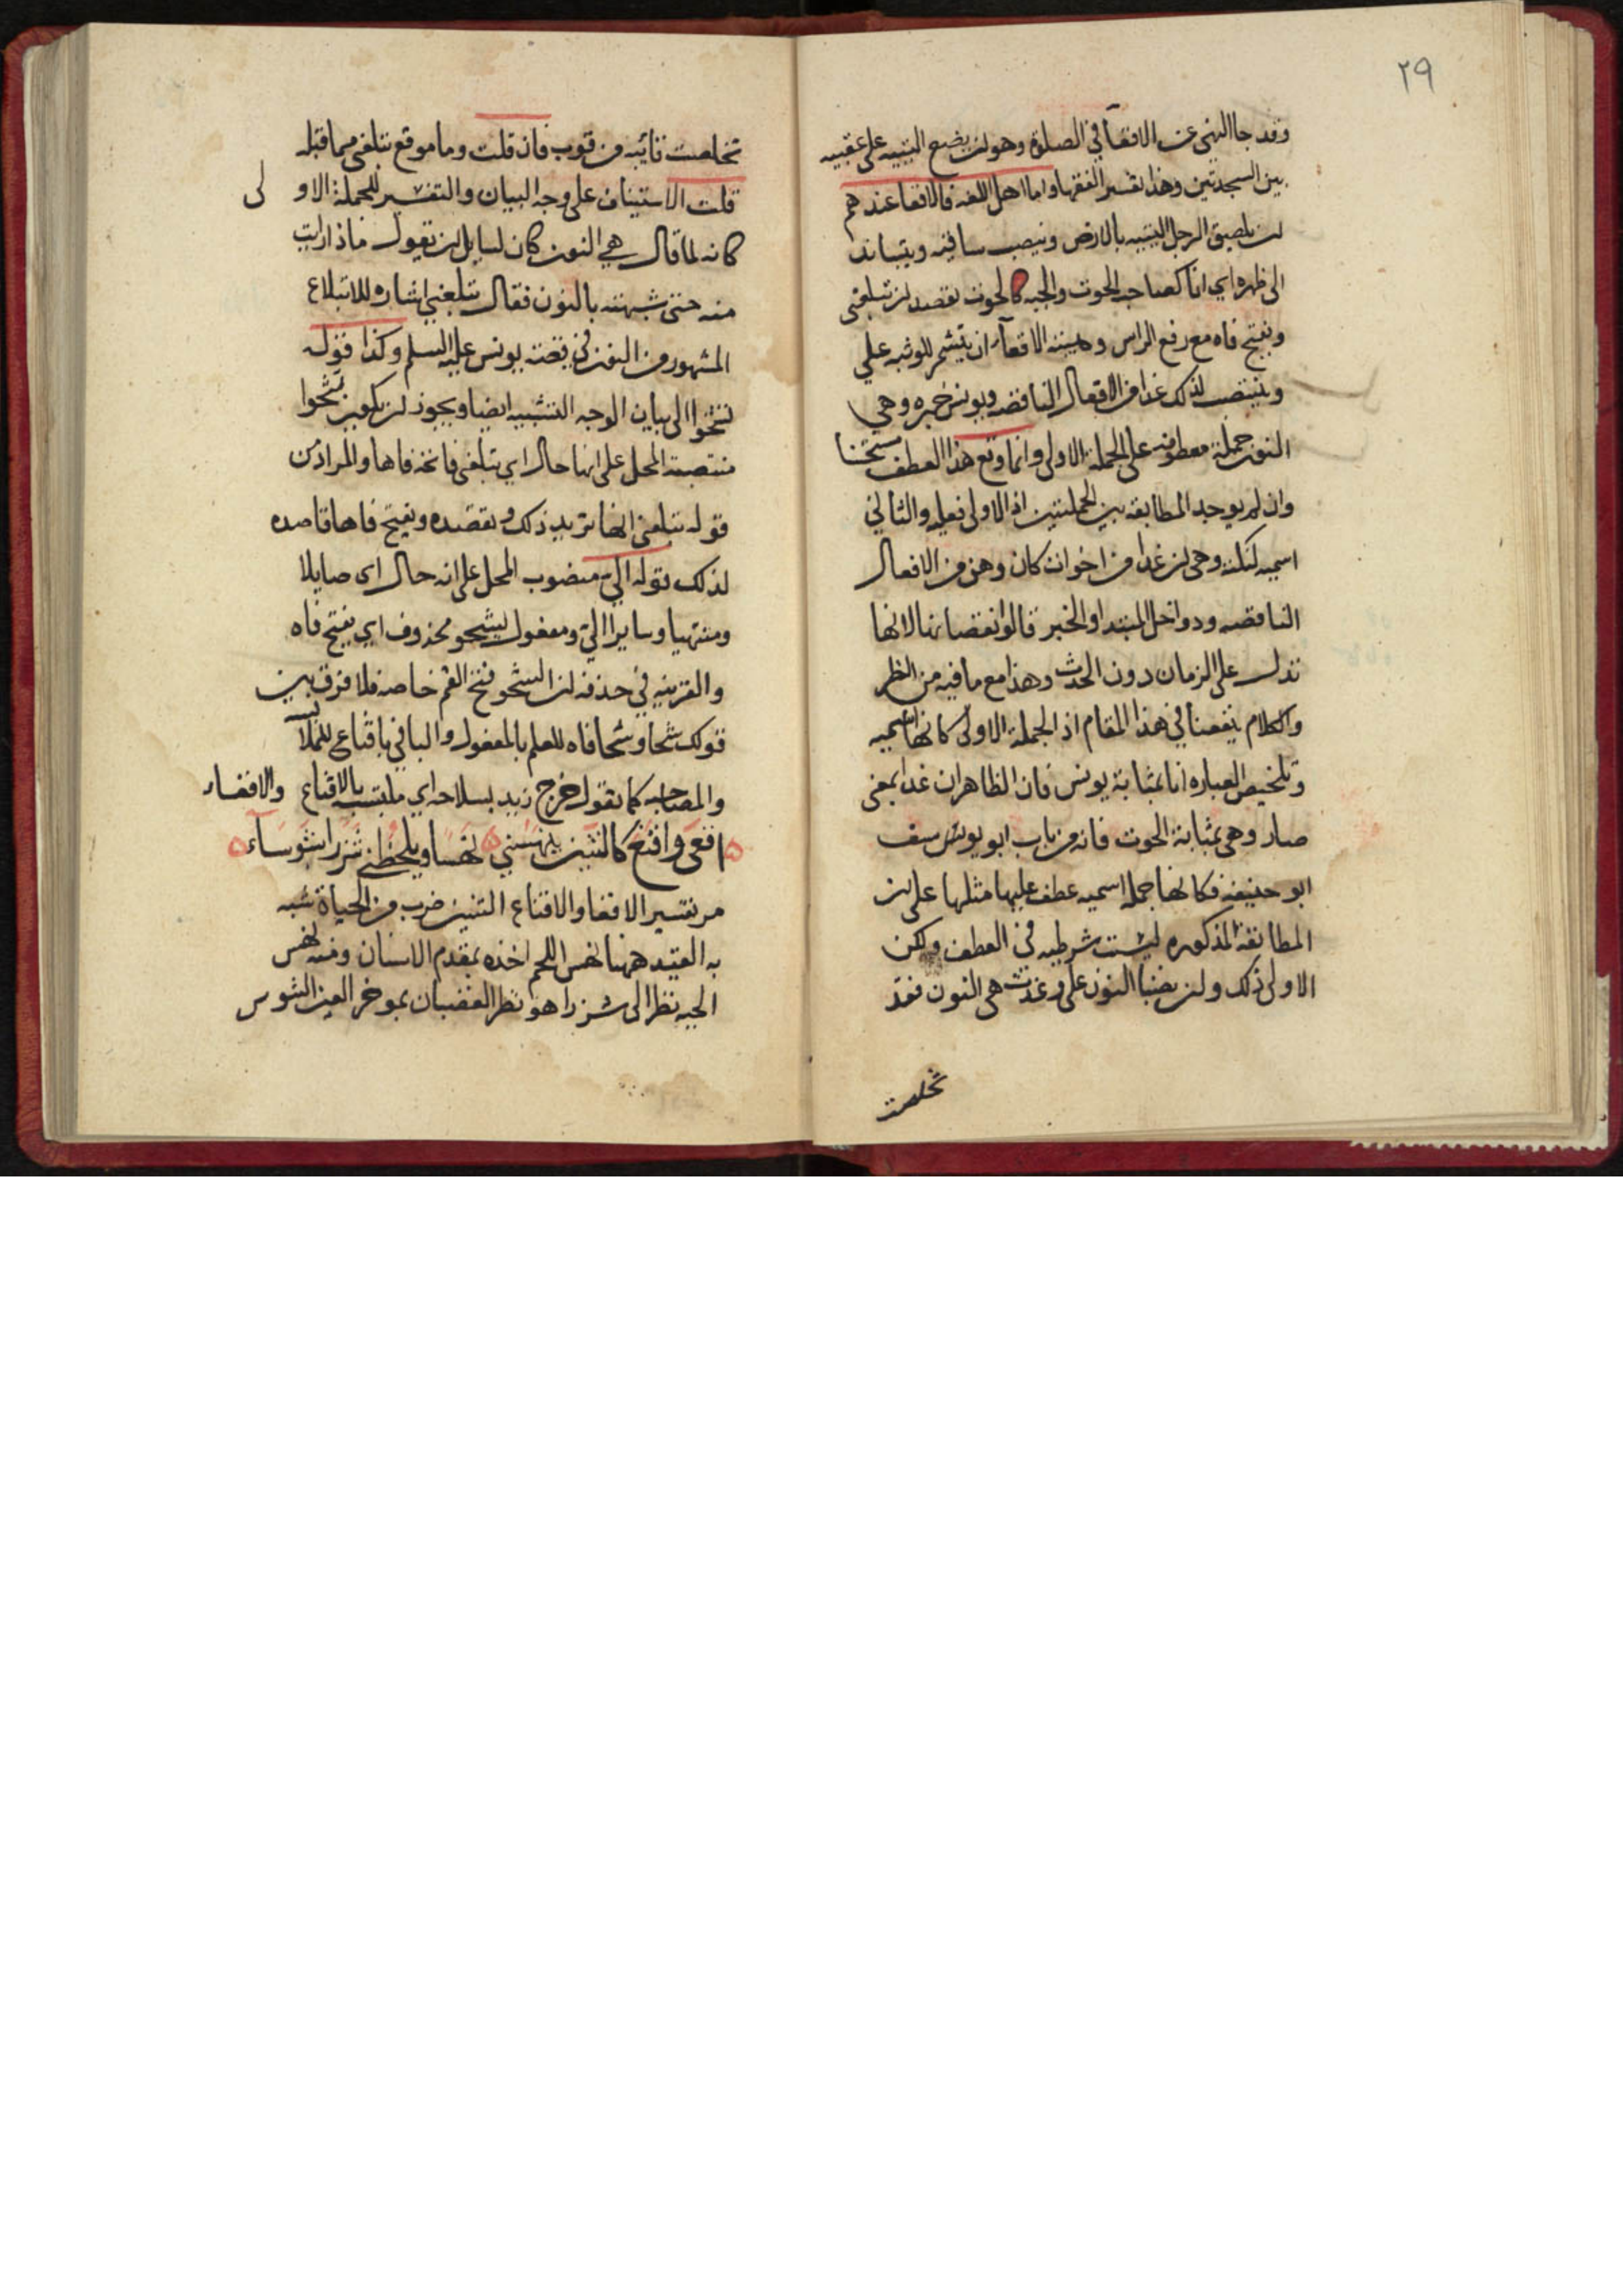 ٢٩
وقد جا النهى عن الاقعآ في الصلوة وهو ان يضع اليتيه على عقبيه
بين السجدتين وهذا تفسير الفقها واما اهل اللغه فالاقعا عندهم
ان يلصق الرجل اليتيه بالارض وينصب ساقيه ويتساند
الى ظهره اي انا كصاحب الحوت والجبه كالحوت تقصد ان تبلغني
وتفتح فاه مع رفع الراس وهيئة الاقعآ ان يتشمر للوثبه على
وينتصب لذلك غدا من الافعال الناقصه ويونس خبره وهي
النون جملة معطوفه على الجملة الاولى وانما وقع هذا العطف
وان لم يوجد المطابقه بين الجملتين اذ الاولى فعليه والثاني
اسميه لنكتة وهي ان غدا من اخوات كان وهن من الافعال
الناقصه ودواخل المبتدا والخبر قالوا نقصانها لانها
تدل على الزمان دون الحدث وهذا مع ما فيه من النظر
والكلام ينفعنا في هذا المقام اذ الجملة الاولى كانها اسميه
وتلخيص العباره انا بمثابة يونس فان الظاهر ان غدا بمعنى
صار وهي بمثابة الحوت فانه من باب ابو يوسف
ابو حنيفة فكانها جملة اسميه عطف عليها مثلها على ان
المطابقة المذكوره ليست شرطيه في العطف ولكن
الاولى ذلك وان نصبنا النون على وغدت هي النون فقد
تخلصت
تخلصت قائبه من قوب فان قلت وما موقع تبلغني مما قبله
قلت الاستيناف على وجه البيان والتفسير للجملة الاو لى
كانه لما قال هي النون كان لسايل ان يقول ماذا رايت
منه حتى شبهته بالنون فقال تبلعني اشاره للابتلاع
المشهور من النون في قصة يونس عليه السلم وكذا قوله
تشحوا الى بيان الوجه التشبيه ايضا ويجوز ان يكون تشحوا
منتصبة المحل على انها حال اي تبلغني فاتحة فاها والمراد من
قوله تبلعني انها تريد ذلك وتقصده وتفتح فاها قاصده
لذلك قوله اليّ منصوب المحل على انه حال اى صايلا
ومنتهيا وسايرا اليّ ومفعول يشحو محذوف اي يفتح فاه
والقرينه في حذفه ان الشحو فتح الفم خاصه فلا فرق بين
قولك شحا وشحا فاه للعلم بالمفعول والبا في باقناع للملابسة
والمصاحبه كما تقول خرج زيد بسلاحه اي ملتبسا بالاقناع والاقعاء
اقعى واقنع كالتنين ينهشني نهسا ويلحظني شزرا شوساء
مر تفسير الاقعا والاقناع التنين ضرب من الحياة شبه
به القيد ههنا نهس اللحم اخذه بمقدم الاسنان ومنه نهس
الحيه نظر الى شزرا هو نظر الغضبان بموخر العين الشوس